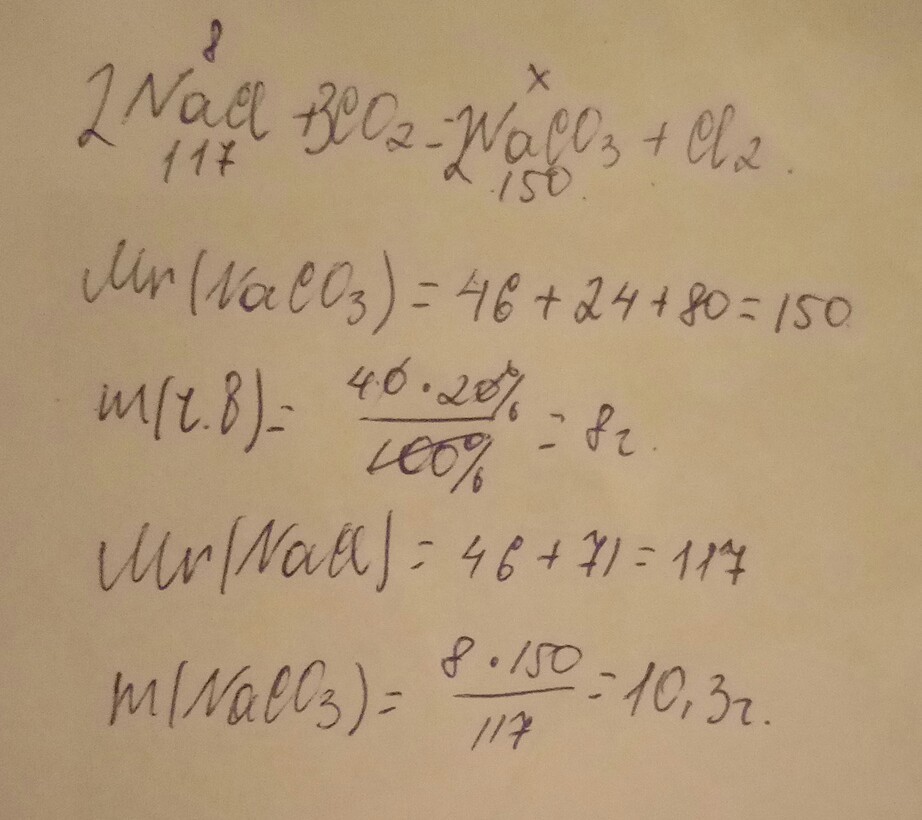 8 x
2NaCl + 3CO₂ = 2NaCO₃ + Cl₂.
117 150
Mr(NaCO₃) = 46 + 24 + 80 = 150
m(г.в) = 40 · 20% / 100% = 8г.
Mr(NaCl) = 46 + 71 = 117
m(NaCO₃) = 8 · 150 / 117 = 10,3г.